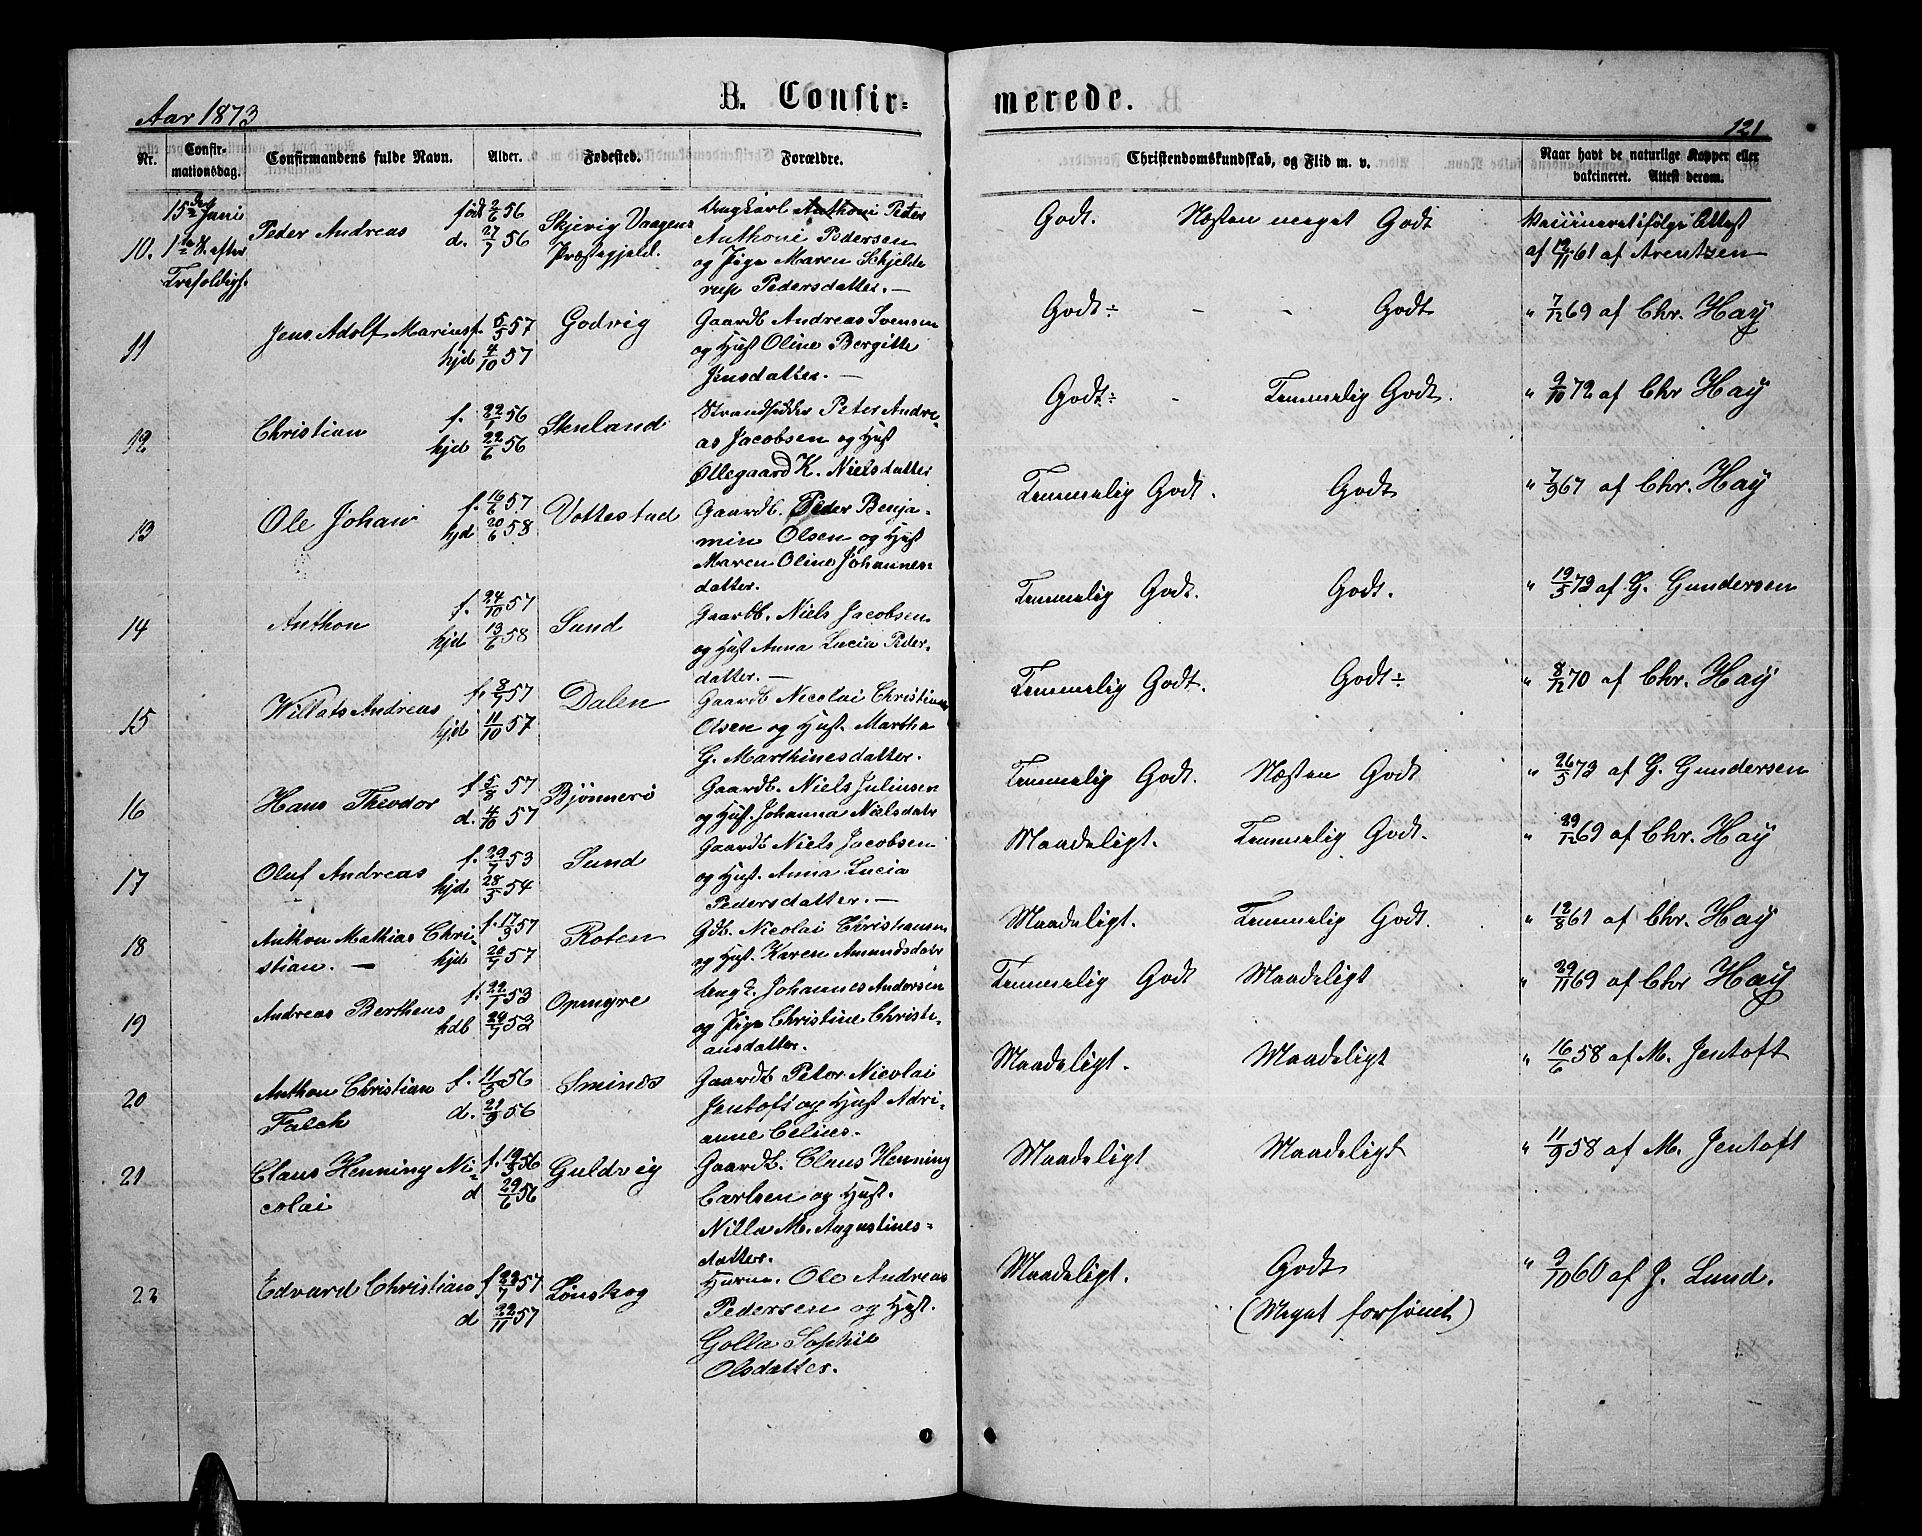 Aar 1873
B. Confir-
merede.
121
Nr.
Confir-
mationsdag.
Confirmandens fulde Navn.
Alder.
Fødested.
Forældre.
Christendomskundskab, og Flid m. v.
Naar havt de naturlige Kopper eller
vakcineret. Attest derom.
10.
15de Juni
1ste S. efter
Trefoldigh.
Peder Andreas
født 2/6 56
d. 27/7 56
Skjevig Vaagens
Præstegjeld.
Ungkarl Anthoni Peter
Anthoni Pedersen
og Pige Maren Schjelde
rup Pedersdatter. —
Godt. Næsten meget Godt
Vaccineret ifølge Attest
af 12/11 61 af Arentzen
11
Jens Adolf Marius
f. 5/5 57
hjd 4/10 57
Godvig
Gaardb. Andreas Svensen
og Hust Oline Bergitte
Jensdatter. —
Godt ÷ - - Godt
" 7/12 69 af Chr. Hay
12
Christian
f. 22/1 56
hjd 22/6 56
Stenland
Strandsidder Peter Andre-
as Jacobsen og Hust
Øllegaard K. Nielsdatter
Godt ÷ Temmelig Godt.
" 9/10 72 af Chr Hay
13
Ole Johan
f. 16/6 57
hjd 20/6 58
Vottestad
Gaardb. Peder Benja-
min Olsen og Hust
Maren Oline Johannes-
datter.
Temmelig Godt. Godt
" 7/9 67 af Chr. Hay
14
Anthon
f. 24/10 57
hjd 13/6 58
Sund
Gaardb. Niels Jacobsen
og Hust Anna Lucia Peder-
datter. —
Temmelig Godt. Godt.
" 19/5 73 af G. Gundersen
15
Willats Andreas
f. 8/7 57
hjd 11/10 57
Dalen
Gaardb Nicolai Christian
Olsen og Hust. Martha
G. Marthinesdatter.
Temmelig Godt. Godt ÷
" 8/12 70 af Chr. Hay
16
Hans Theodor
f. 5/8 57
d. 4/10 57
Bjønnerø
Gaardb. Niels Juliusen
og Hust. Johanna Nielsdatr
Temmelig Godt. Næsten Godt
" 26/5 73 af G. Gundersen
17
Oluf Andreas
f. 29/7 53
hjd 28/5 54
Sund
Gaardb Niels Jacobsen
og Hust. Anna Lucia
Pedersdatter. —
Maadeligt. Temmelig Godt.
" 29/12 69 af Chr. Hay
18
Anthon Mathias Chri-
stian. —
f. 17/3 57
hjd 20/7 57
Roten
Gdb. Nicolai Christiansen
og Hust. Karen Amundsdatr
Maadeligt. Temmelig Godt.
" 12/8 61 af Chr. Hay
19
Andreas Bertheus
f. 22/1 53
hdb 24/7 53
Opmyre
Ungk. Johannes Andersen
og Pige Christine Christi-
ansdatter.
Temmelig Godt Maadeligt
" 29/11 69 af Chr Hay
20
Anthon Christian
Falch
f. 11/3 56
d. 21/9 56
Sminds
Gaardb Peter Nicolai
Jentoft og Hust Adri-
anne Celius.
Maadeligt. Maadeligt
" 16/6 58 af M. Jentoft
21
Claus Henning Ni-
colai
f. 19/3 56
d 29/6 56
Guldvig
Gaardb. Claus Henning
Carlsen og Hust.
Nilla M. Augustines-
datter.
Maadeligt Maadeligt
" 11/9 58 af M. Jentoft
22
Edvard Christian
f 22/7 57
d 22/11 57
Lønskog
Huusm. Ole Andreas
Pedersen og Hust.
Golla Sophie
Olsdatter.
Maadeligt. Godt
(Meget forsømt)
" 9/10 60 af J. Lund.